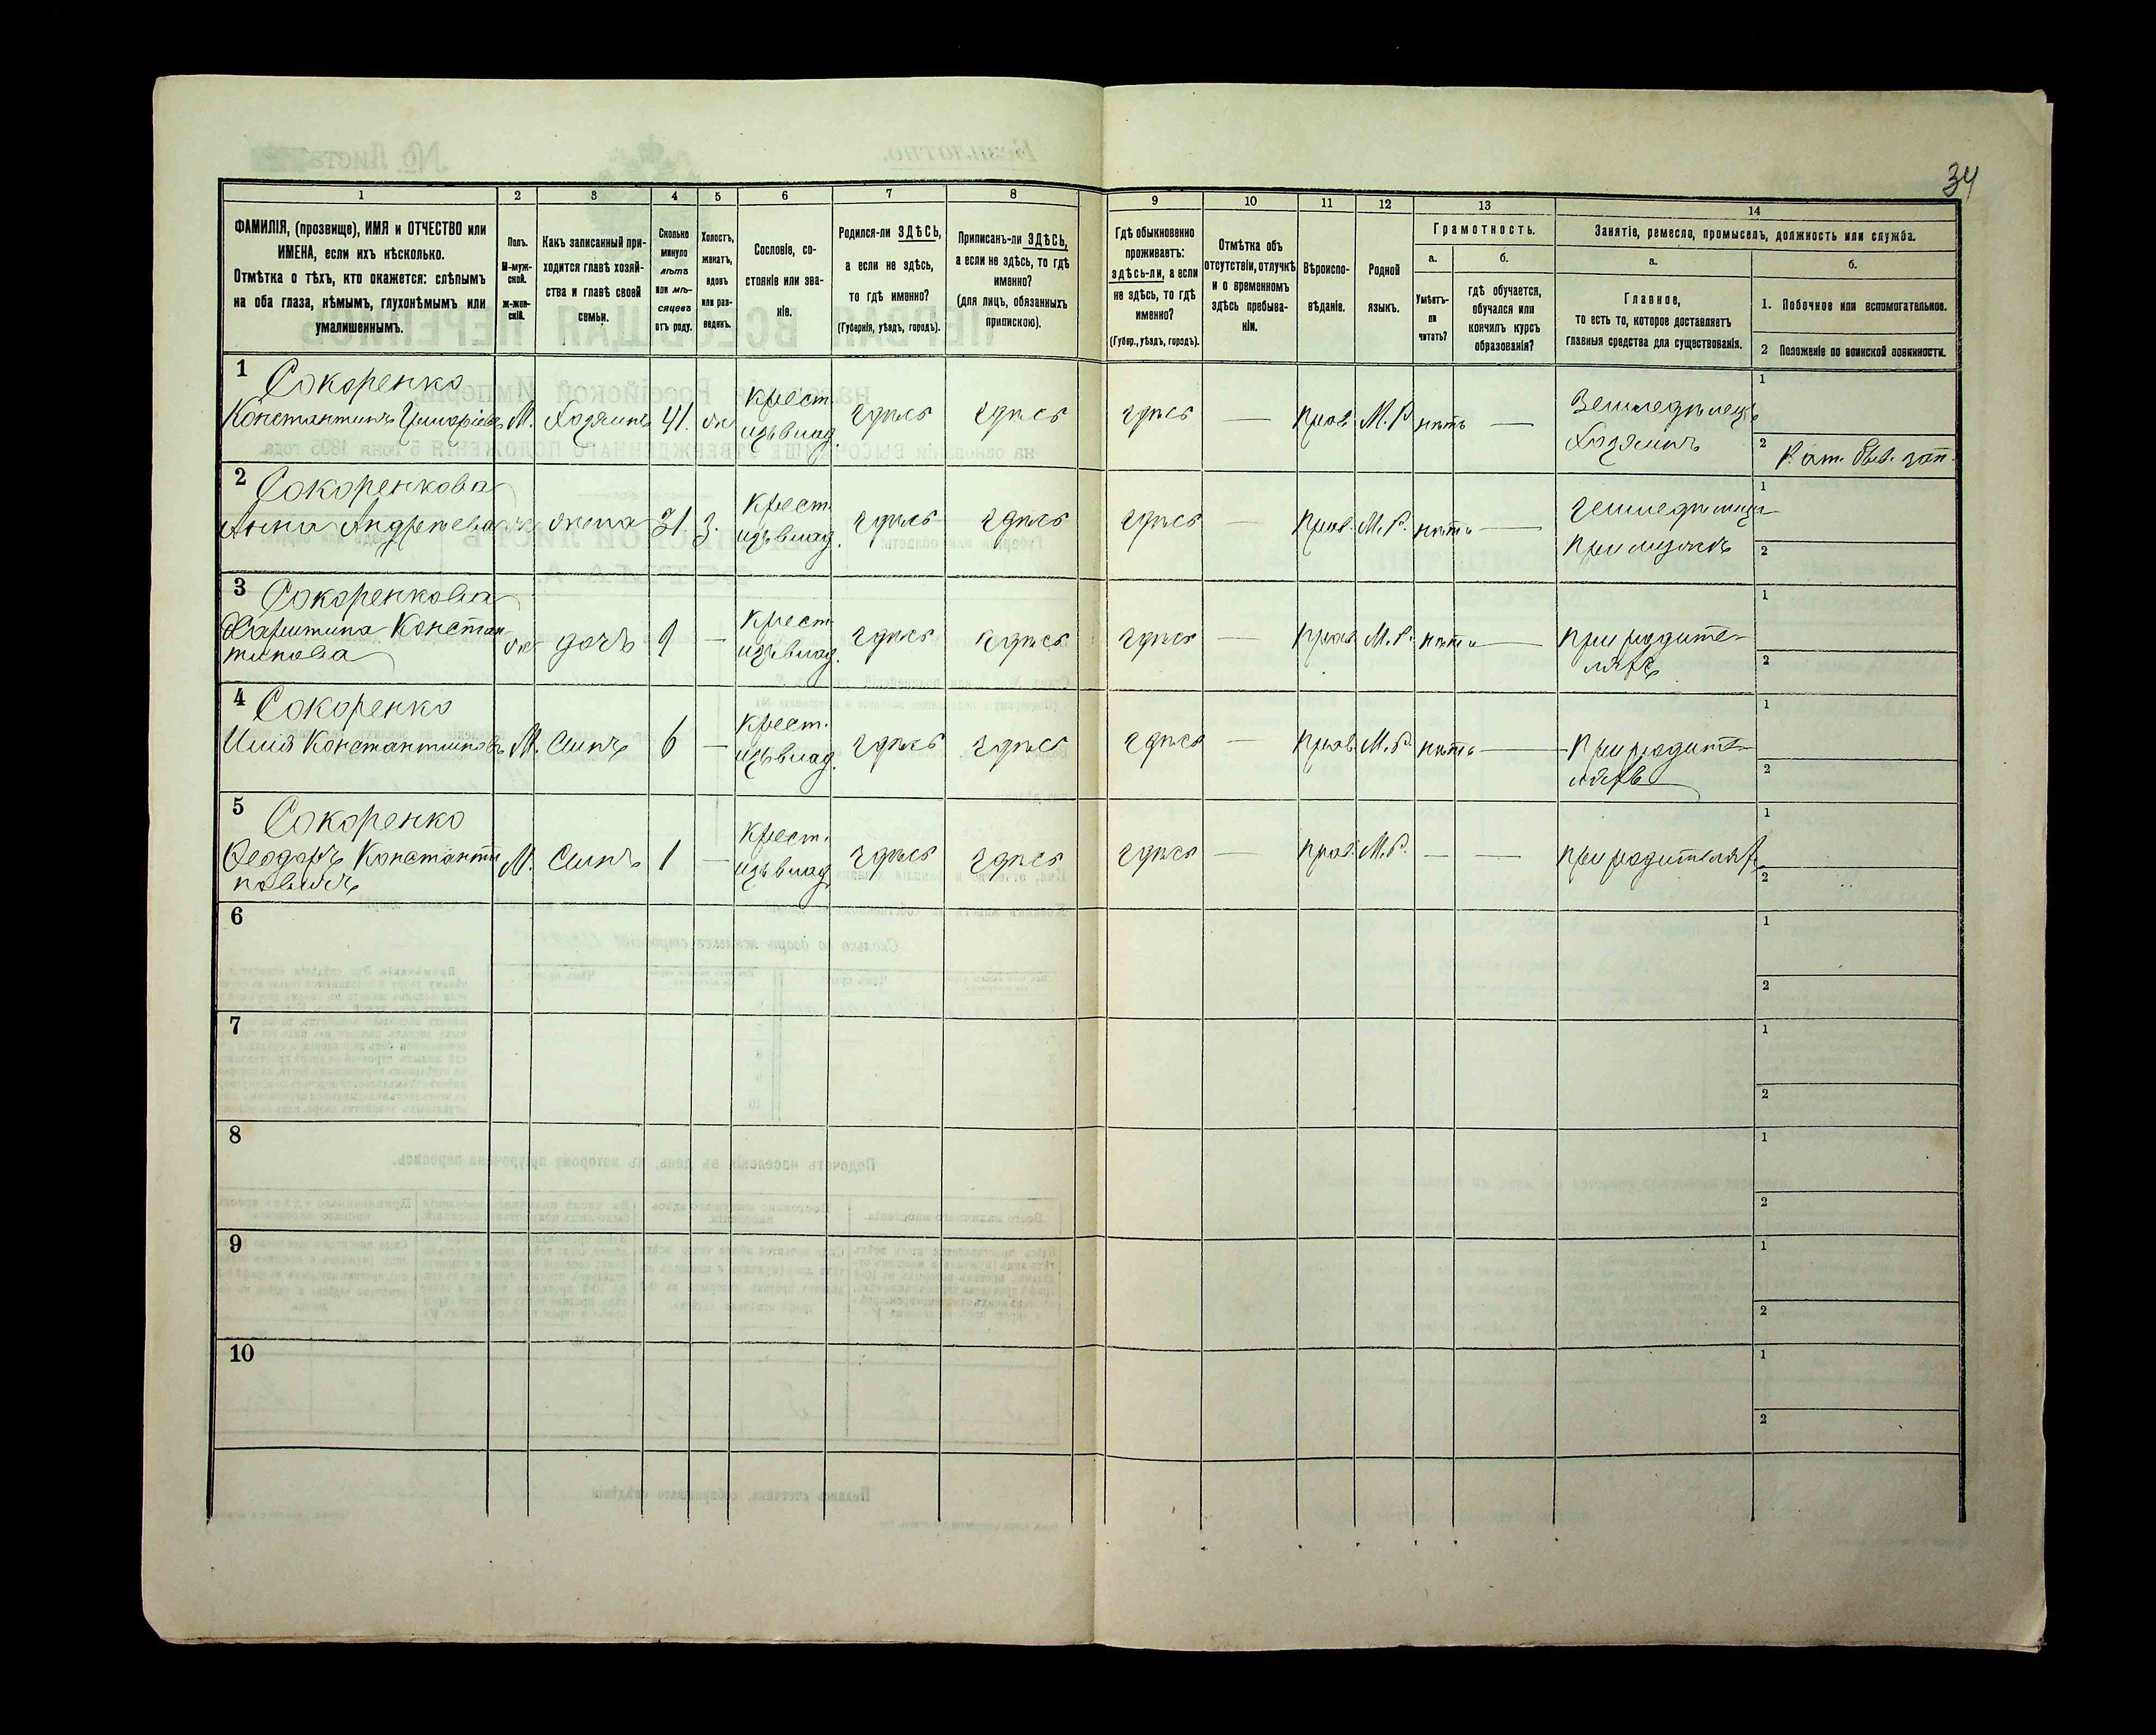 34
1 2 3 4 5 6 7 8 9 10 11 12 13 14
ФАМИЛІЯ, (прозвище), ИМЯ и ОТЧЕСТВО или
ИМЕНА, если ихъ нѣсколько.
Отмѣтка о тѣхъ, кто окажется: слѣпымъ
на оба глаза, нѣмымъ, глухонѣмымъ или
умалишеннымъ.
Полъ.
М-муж-
ской.
Ж-жен-
скій.
Какъ записанный при-
ходится главѣ хозяй-
ства и главѣ своей
семьи.
Сколько
минуло
лѣтъ
или мѣ-
сяцевъ
отъ роду.
Холостъ,
женатъ,
вдовъ
или раз-
веденъ.
Сословіе, со-
стояніе или зва-
ніе.
Родился-ли ЗДѢСЬ,
а если не здѣсь,
то гдѣ именно?
(Губернія, уѣздъ, городъ).
Приписанъ-ли ЗДѢСЬ,
а если не здѣсь, то гдѣ
именно?
(для лицъ, обязанныхъ
припискою).
Гдѣ обыкновенно
проживаетъ:
здѣсь-ли, а если
не здѣсь, то гдѣ
именно?
(Губер., уѣздъ, городъ).
Отмѣтка объ
отсутствіи, отлучкѣ
и о временномъ
здѣсь пребыва-
ніи.
Вѣроиспо-
вѣданіе.
Родной
языкъ.
Грамотность.
а.
Умѣетъ-
ли
читать?
б.
гдѣ обучается,
обучался или
кончилъ курсъ
образованія?
Занятіе, ремесло, промыселъ, должность или служба.
а.
Главное,
то есть то, которое доставляетъ
главныя средства для существованія.
б.
1. Побочное или вспомогательное.
2 Положеніе по воинской повинности.
1 Сокоренко
Константинъ М. Хозяинъ 41. ж
Крест.
изъ влад. здѣсь здѣсь здѣсь — Прав. М.Р. нѣтъ —
Земледѣлецъ
Хозяинъ
1
2 Рат.
2 Сокоренкова
Анна Андреева ж жена 31. З.
Крест.
изъ влад. здѣсь здѣсь здѣсь — Прав. М.Р. нѣтъ —
1
2
3 Сокоренкова
Харитина Констан
тинова ж дочь 9 —
Крест
изъ влад. здѣсь здѣсь здѣсь — Прав М.Р. нѣтъ —
при родите-
ляхъ
1
2
4 Сокоренко
Илія Константиновъ М. Сынъ 6 —
Крест.
изъ влад. здѣсь здѣсь здѣсь — Прав. М.Р. нѣтъ —
При родите-
ляхъ
1
2
5 Сокоренко
Феодоръ Константи
новичъ М. Сынъ 1 —
Крест.
изъ влад. здѣсь здѣсь здѣсь — Прав. М.Р. — —
при родителях
1
2
6
1
2
7
1
2
8
1
2
9
1
2
10
1
2